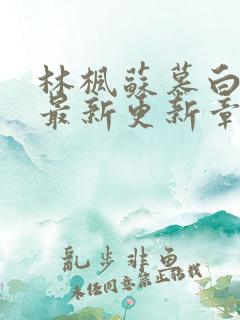 林楓蘇慕白
最新更新章
亂步非魚
未經同意禁止轉載